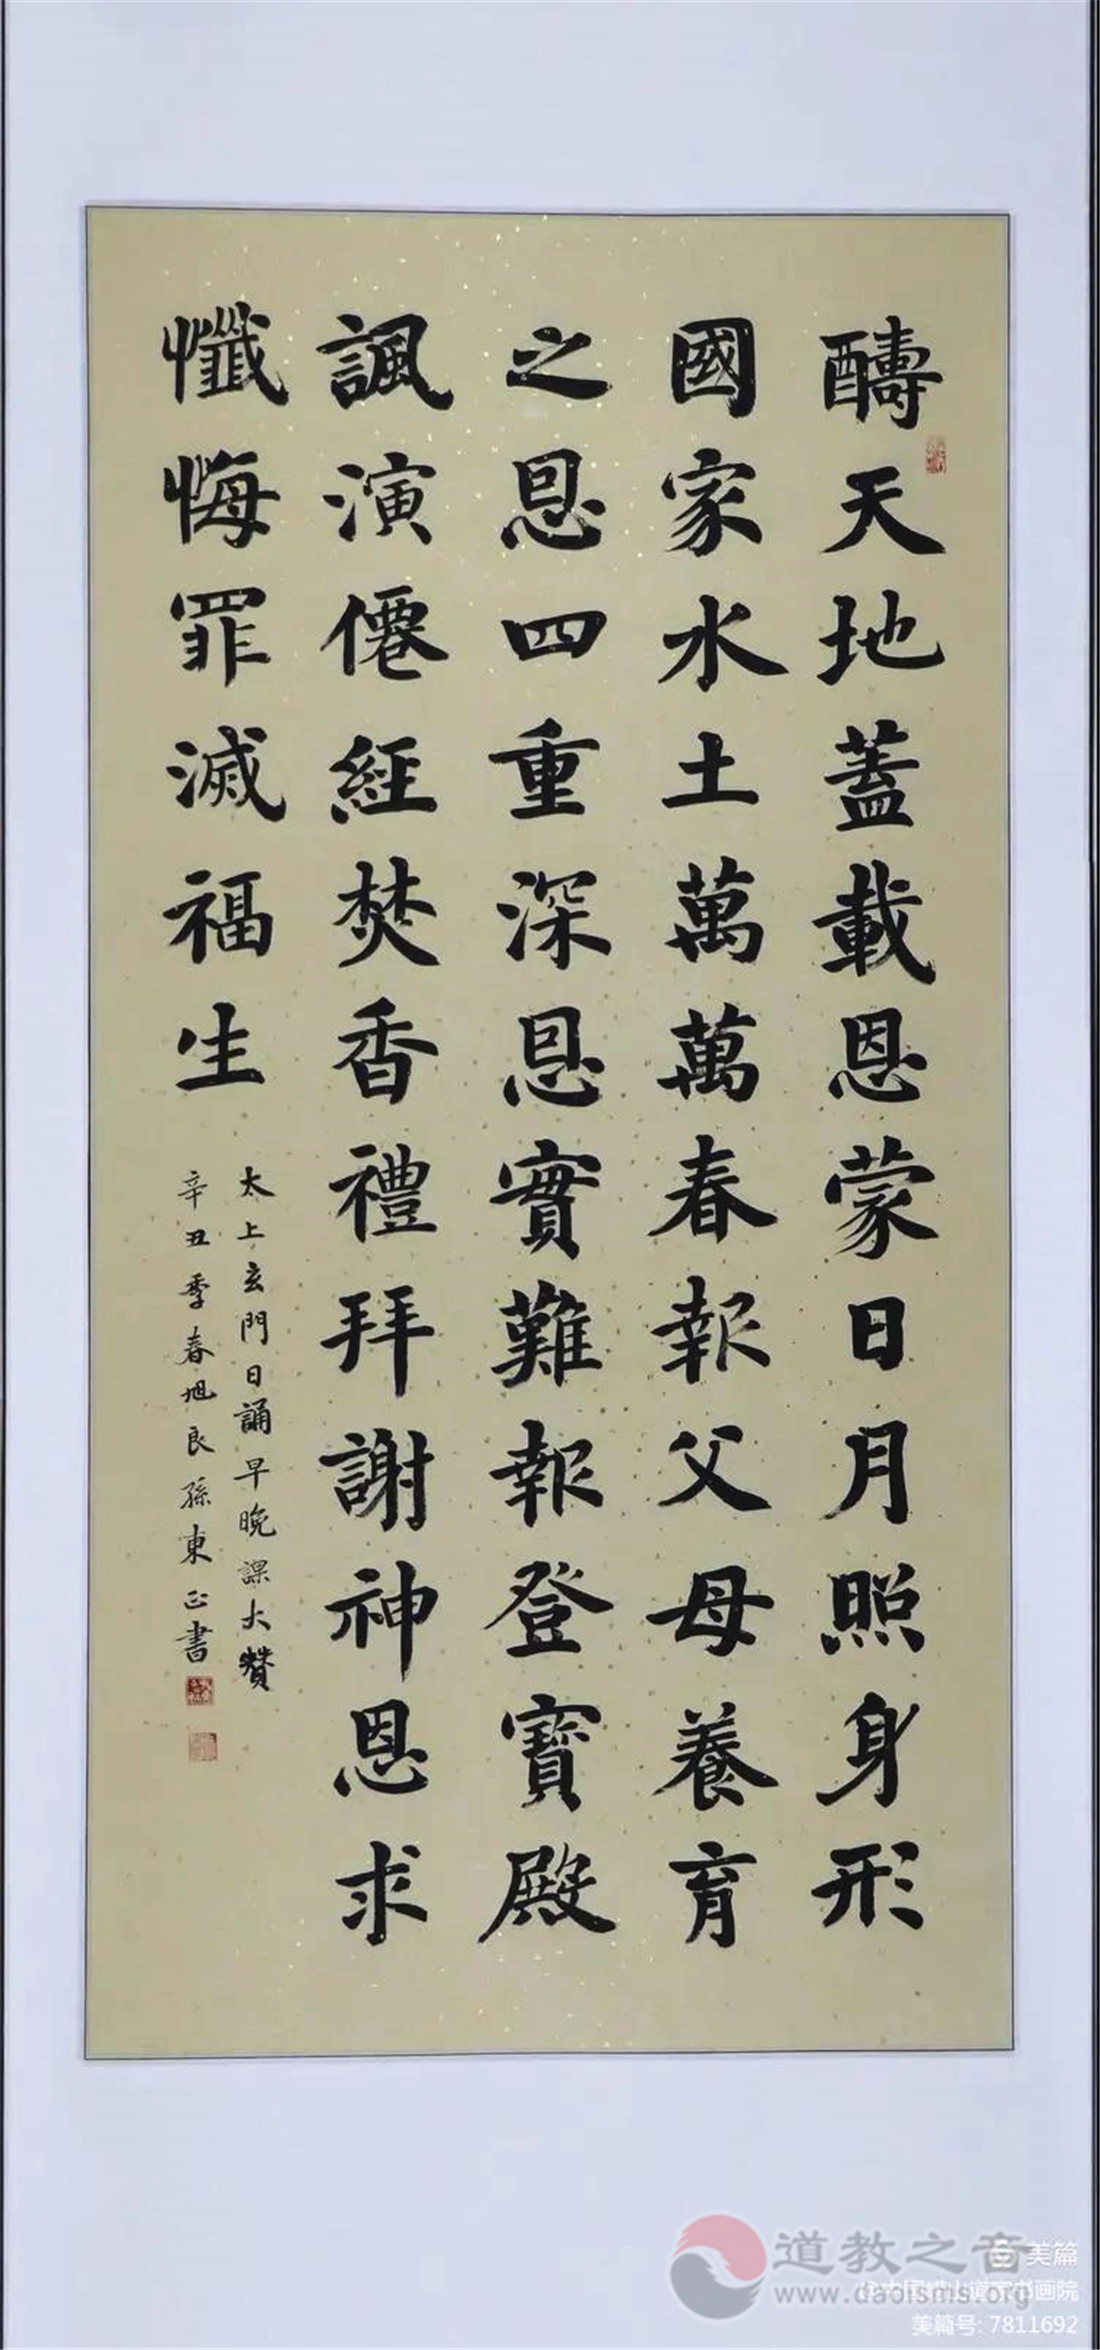 醻天地蓋載恩蒙日月照身形
國家水土萬萬春報父母養育
之恩四重深恩實難報登寶殿
諷演僊經焚香禮拜謝神恩求
懺悔罪滅福生
太上玄門日誦早晚課大贊
辛丑季春旭良孫東正書
道教之音
www.daoisms.org
美篇
美篇号: 7811692